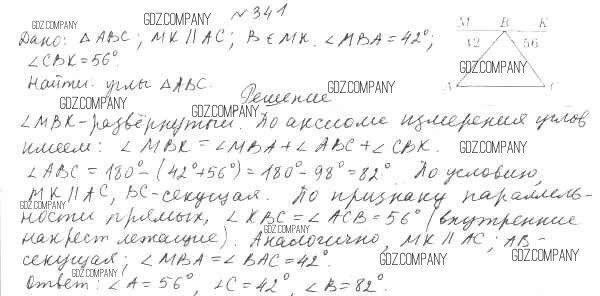 №341
GDZ.COMPANY
GDZ.COMPANY
Дано: △ABC; MK∥AC; B∈MK. ∠MBA=42°;
∠CBK=56°.
GDZ.COMPANY
Найти: углы △ABC.
GDZ.COMPANY
M B K
42 56
GDZ.COMPANY
A C
GDZ.COMPANY
GDZ.COMPANY
Решение
∠MBK-развёрнутый. По аксиоме измерения углов
имеем: ∠MBK=∠MBA+∠ABC+∠CBK.
GDZ.COMPANY
∠ABC=180°-(42°+56°)=180°-98°=82°. По условию,
MK∥AC, BC-секущая. По признаку параллель-
GDZ.COMPANY
ности прямых, ∠KBC=∠ACB=56° (внутренние
GDZ.COMPANY
накрест лежащие). Аналогично, MK∥AC; AB-
секущая; ∠MBA=∠BAC=42°.
GDZ.COMPANY
GDZ.COMPANY
GDZ.COMPANY
Ответ: ∠A=56°, ∠C=42°, ∠B=82°.